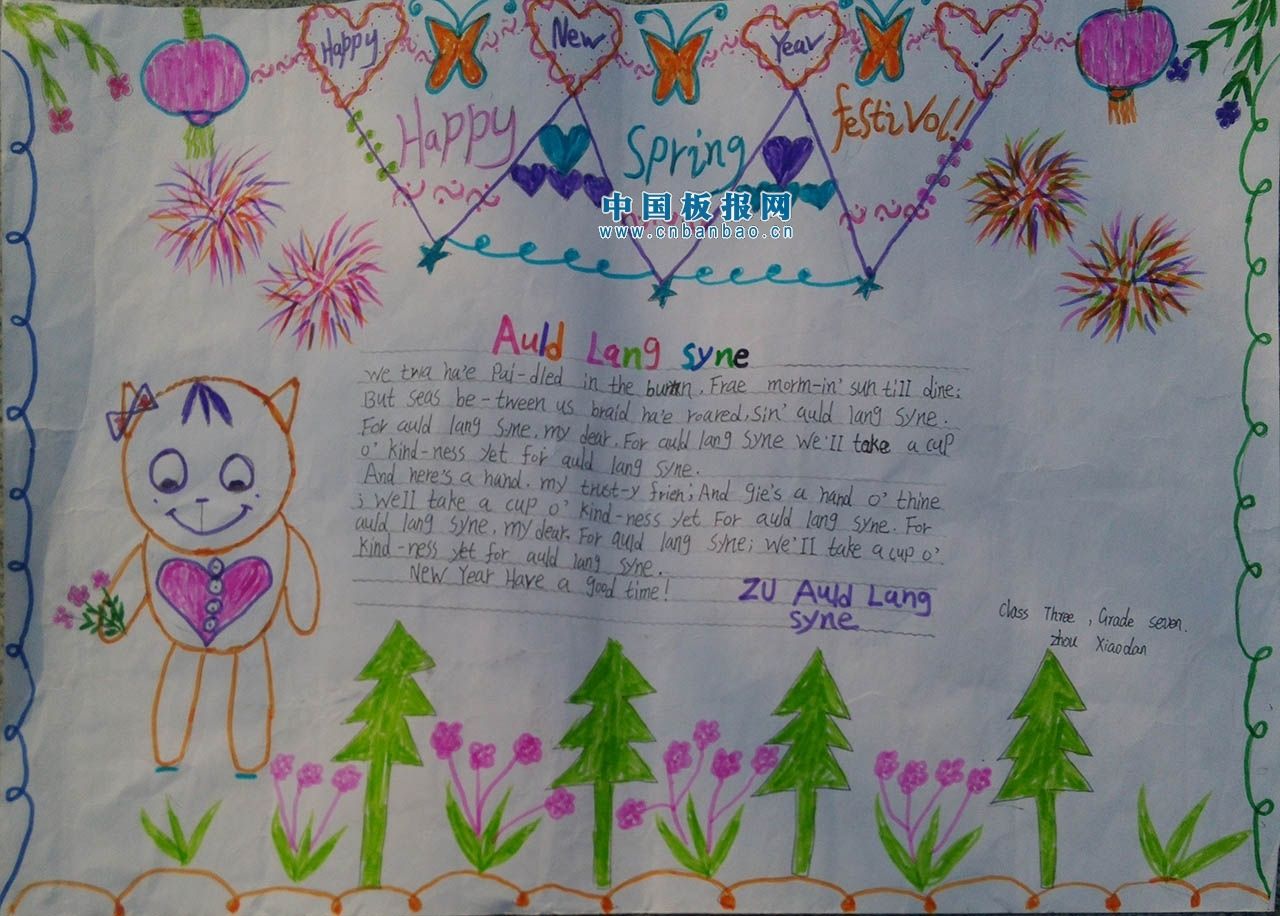 Happy New Year !
Happy Spring festiVol!
中国板报网
www.cnbanbao.cn
Auld Lang syne
We twa ha'e Pai-dled in the burn, Frae morm-in' sun till dine;
But seas be-tween us braid ha'e roared, sin' auld lang syne.
For auld lang syne, my dear, For auld lang syne We'll take a cup
o' kind-ness yet for auld lang syne.
And here's a hand, my trust-y frien; And gie's a hand o' thine
; We'll take a cup o' kind-ness yet For auld lang syne. For
auld lang syne, my dear. For auld lang syne; We'll take a cup o'
kind-ness yet for auld lang syne.
New Year Have a good time!
ZU Auld Lang
syne
Class Three, Grade seven.
zhou Xiaodan